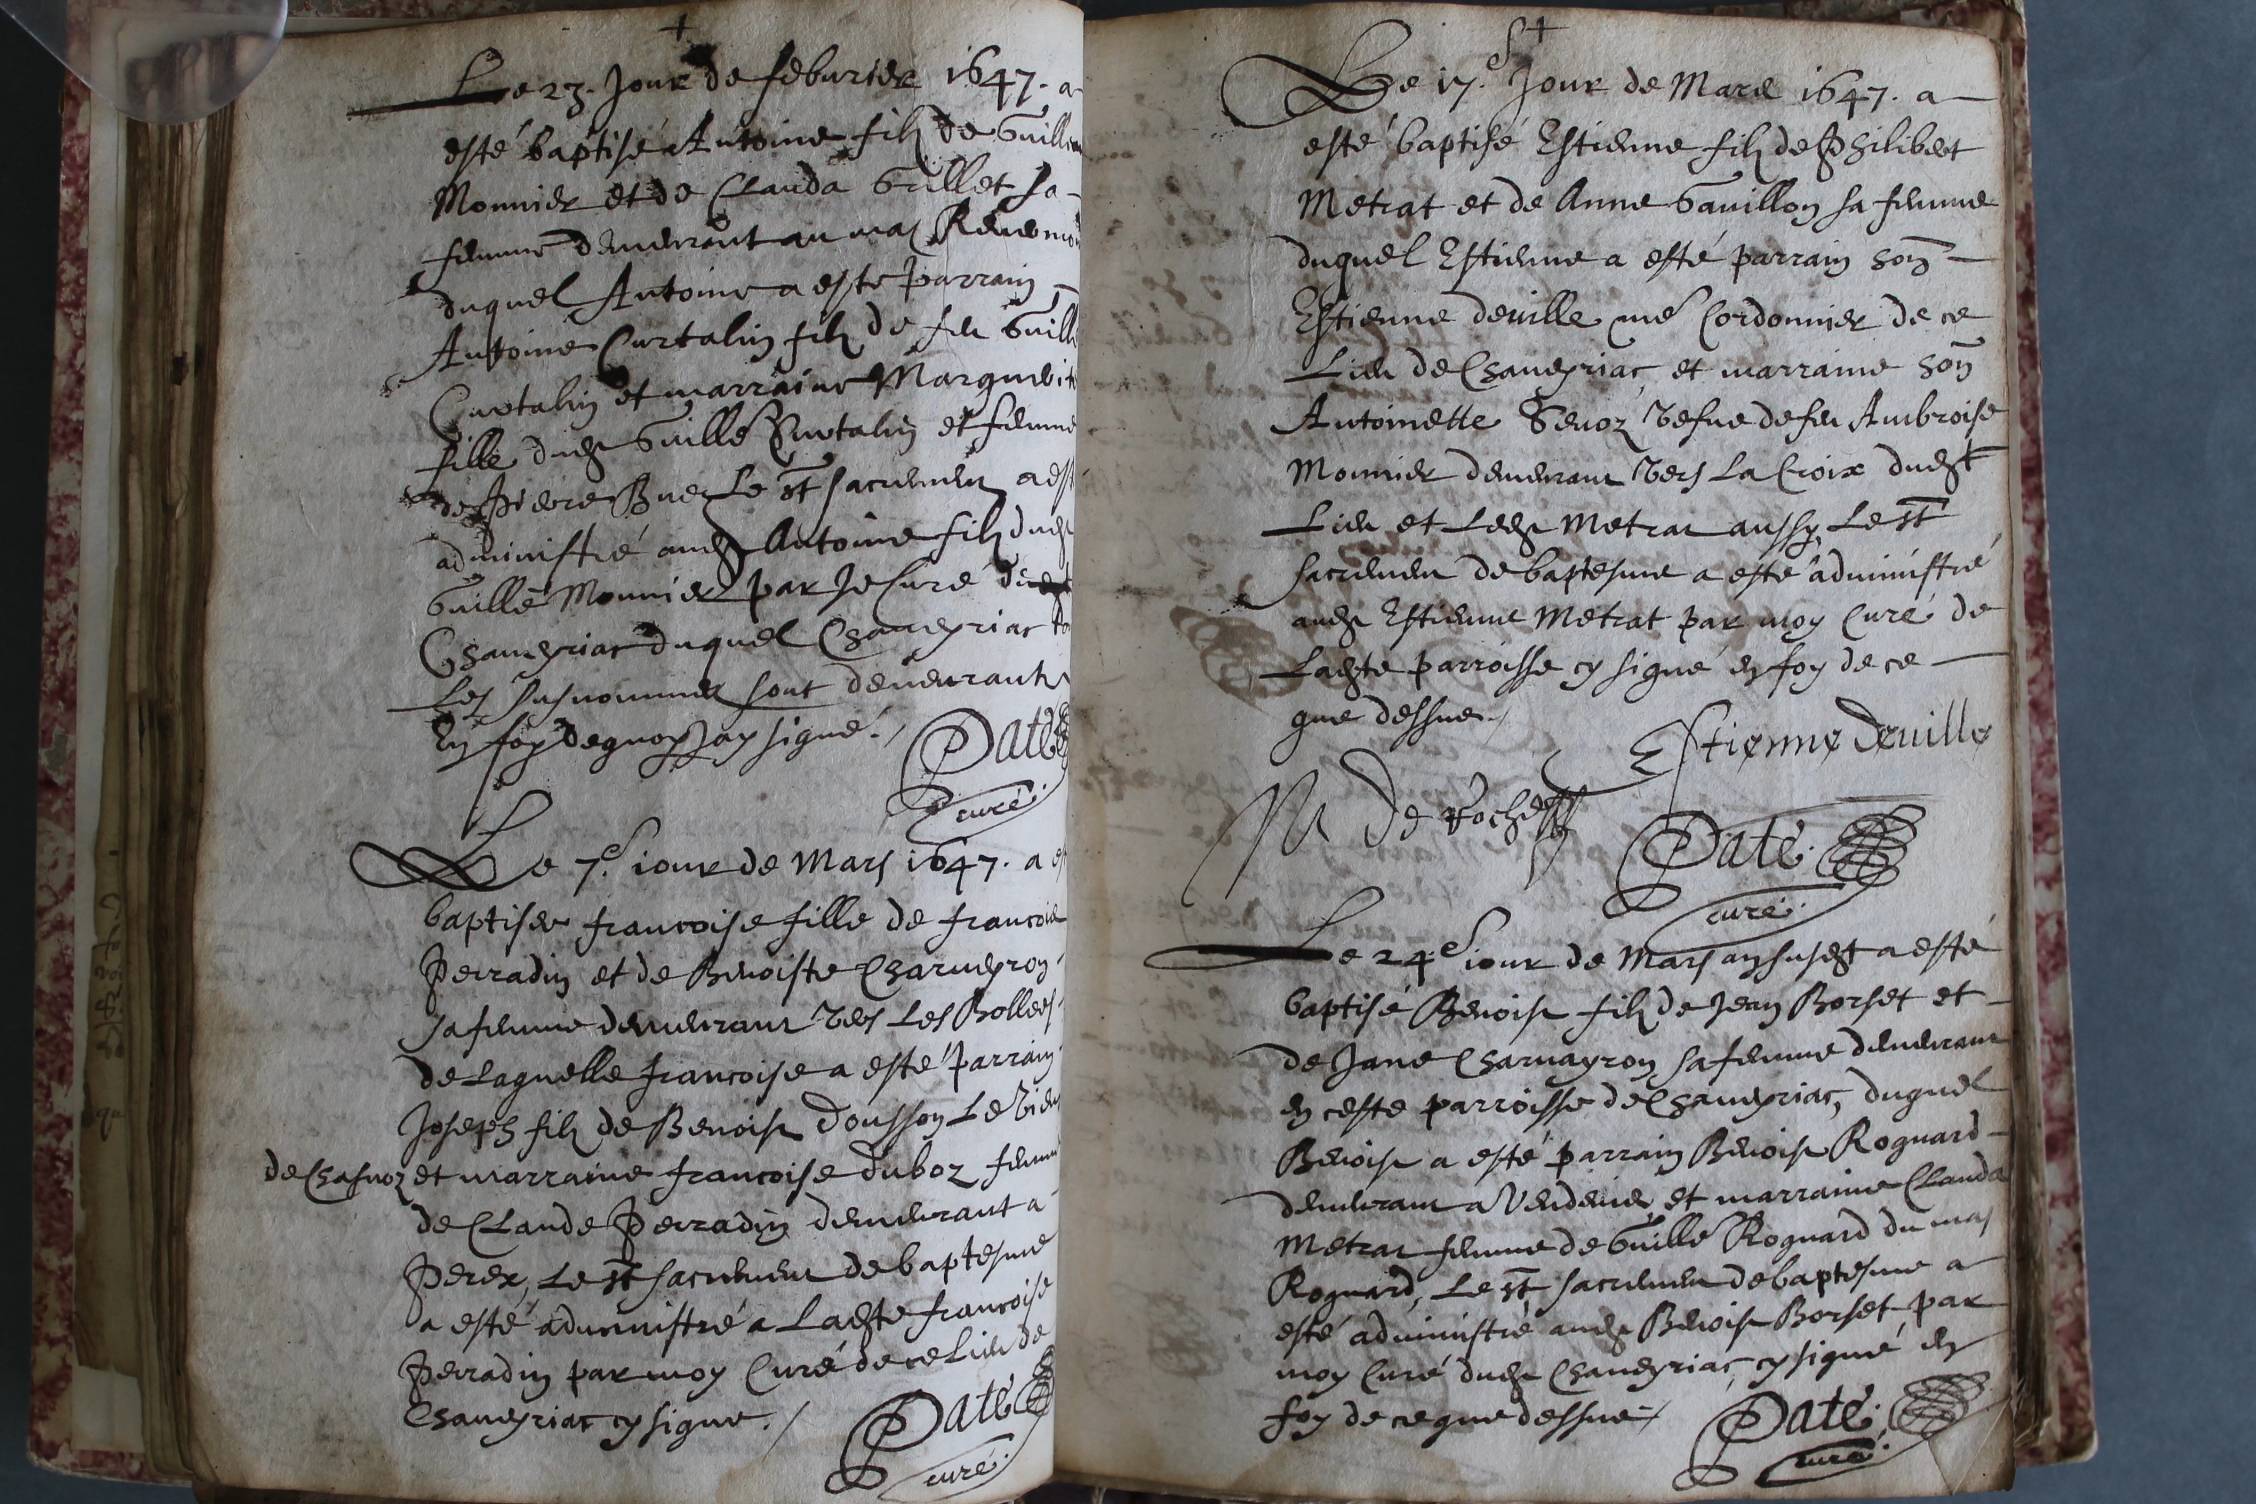 Le 23. Jour de feburier 1647. a
esté baptisé Antoine filz de Guille
Monnier et de Clauda Grillet sa
femme demeurant au mas
duquel Antoine a este parrain
Antoine Curtalin filz de feu Guille
Curtalin et marraine Marguerite
fille dudt Guille Curtalin et femme
de Pierre Buer Le st sacrement a est
administré audt Antoine filz dudt
Guille Monnier par Je Curé
Chaveyriac duquel Chaveyriac
Les susnommez sont demeurants
En foy dequoy Jay signé.
Daté
curé.
Le 7.e iour de Mars 1647. a
baptisee francoise fille de francois
Perradin et de Benoiste Charveyron
sa femme demeurant Vers Les Bollees
de Laquelle francoise a esté parrain
Joseph filz de Benoist Dousson Le Vieu
de Chasnoz et marraine francoise duboz femme
de Claude Perradin demeurant a
Perex, Le st sacrement de baptesme
a esté administré a Ladte francoise
Perradin par moy Curé de ce Lieu de
Chaveyriac cy signe.
Daté
curé.
Le 17.e Jour de Mars 1647. a
esté baptisé Estienne filz de Philibert
Metrat et de Anne Gavillon sa femme
duquel Estienne a esté parrain hon
Estienne deville me Cordonnier de ce
Lieu de Chaveyriac et marraine hon
Antoinette Sevoz Vefue de feu Ambroise
Monnier demeurant Vers La Croix dudt
Lieu et Ledt Metrat aussy, Le st
sacrement de baptesme a esté administré
audt Estienne Metrat par moy Curé de
Ladte parroisse cy signé en foy de ce
que dessus.
Estienne Deville
De Roche
Daté.
curé.
Le 24.e iour de Mars an susdt a esté
baptisé Benoist filz de Jean Borset et
de Jane Charvayron sa femme demeurant
en ceste parroisse de Chaveyriac, duquel
Benoist a esté parrain Benoist Roguard
demeurant a Vendeins et marraine Clauda
Metrat femme de Guille Roguard du mas
Roguard, Le st sacrement de baptesme a
esté administré audt Benoist Borset par
moy Curé dudt Chaveyriac, cy signé en
foy de ce que dessus
Daté.
curé.